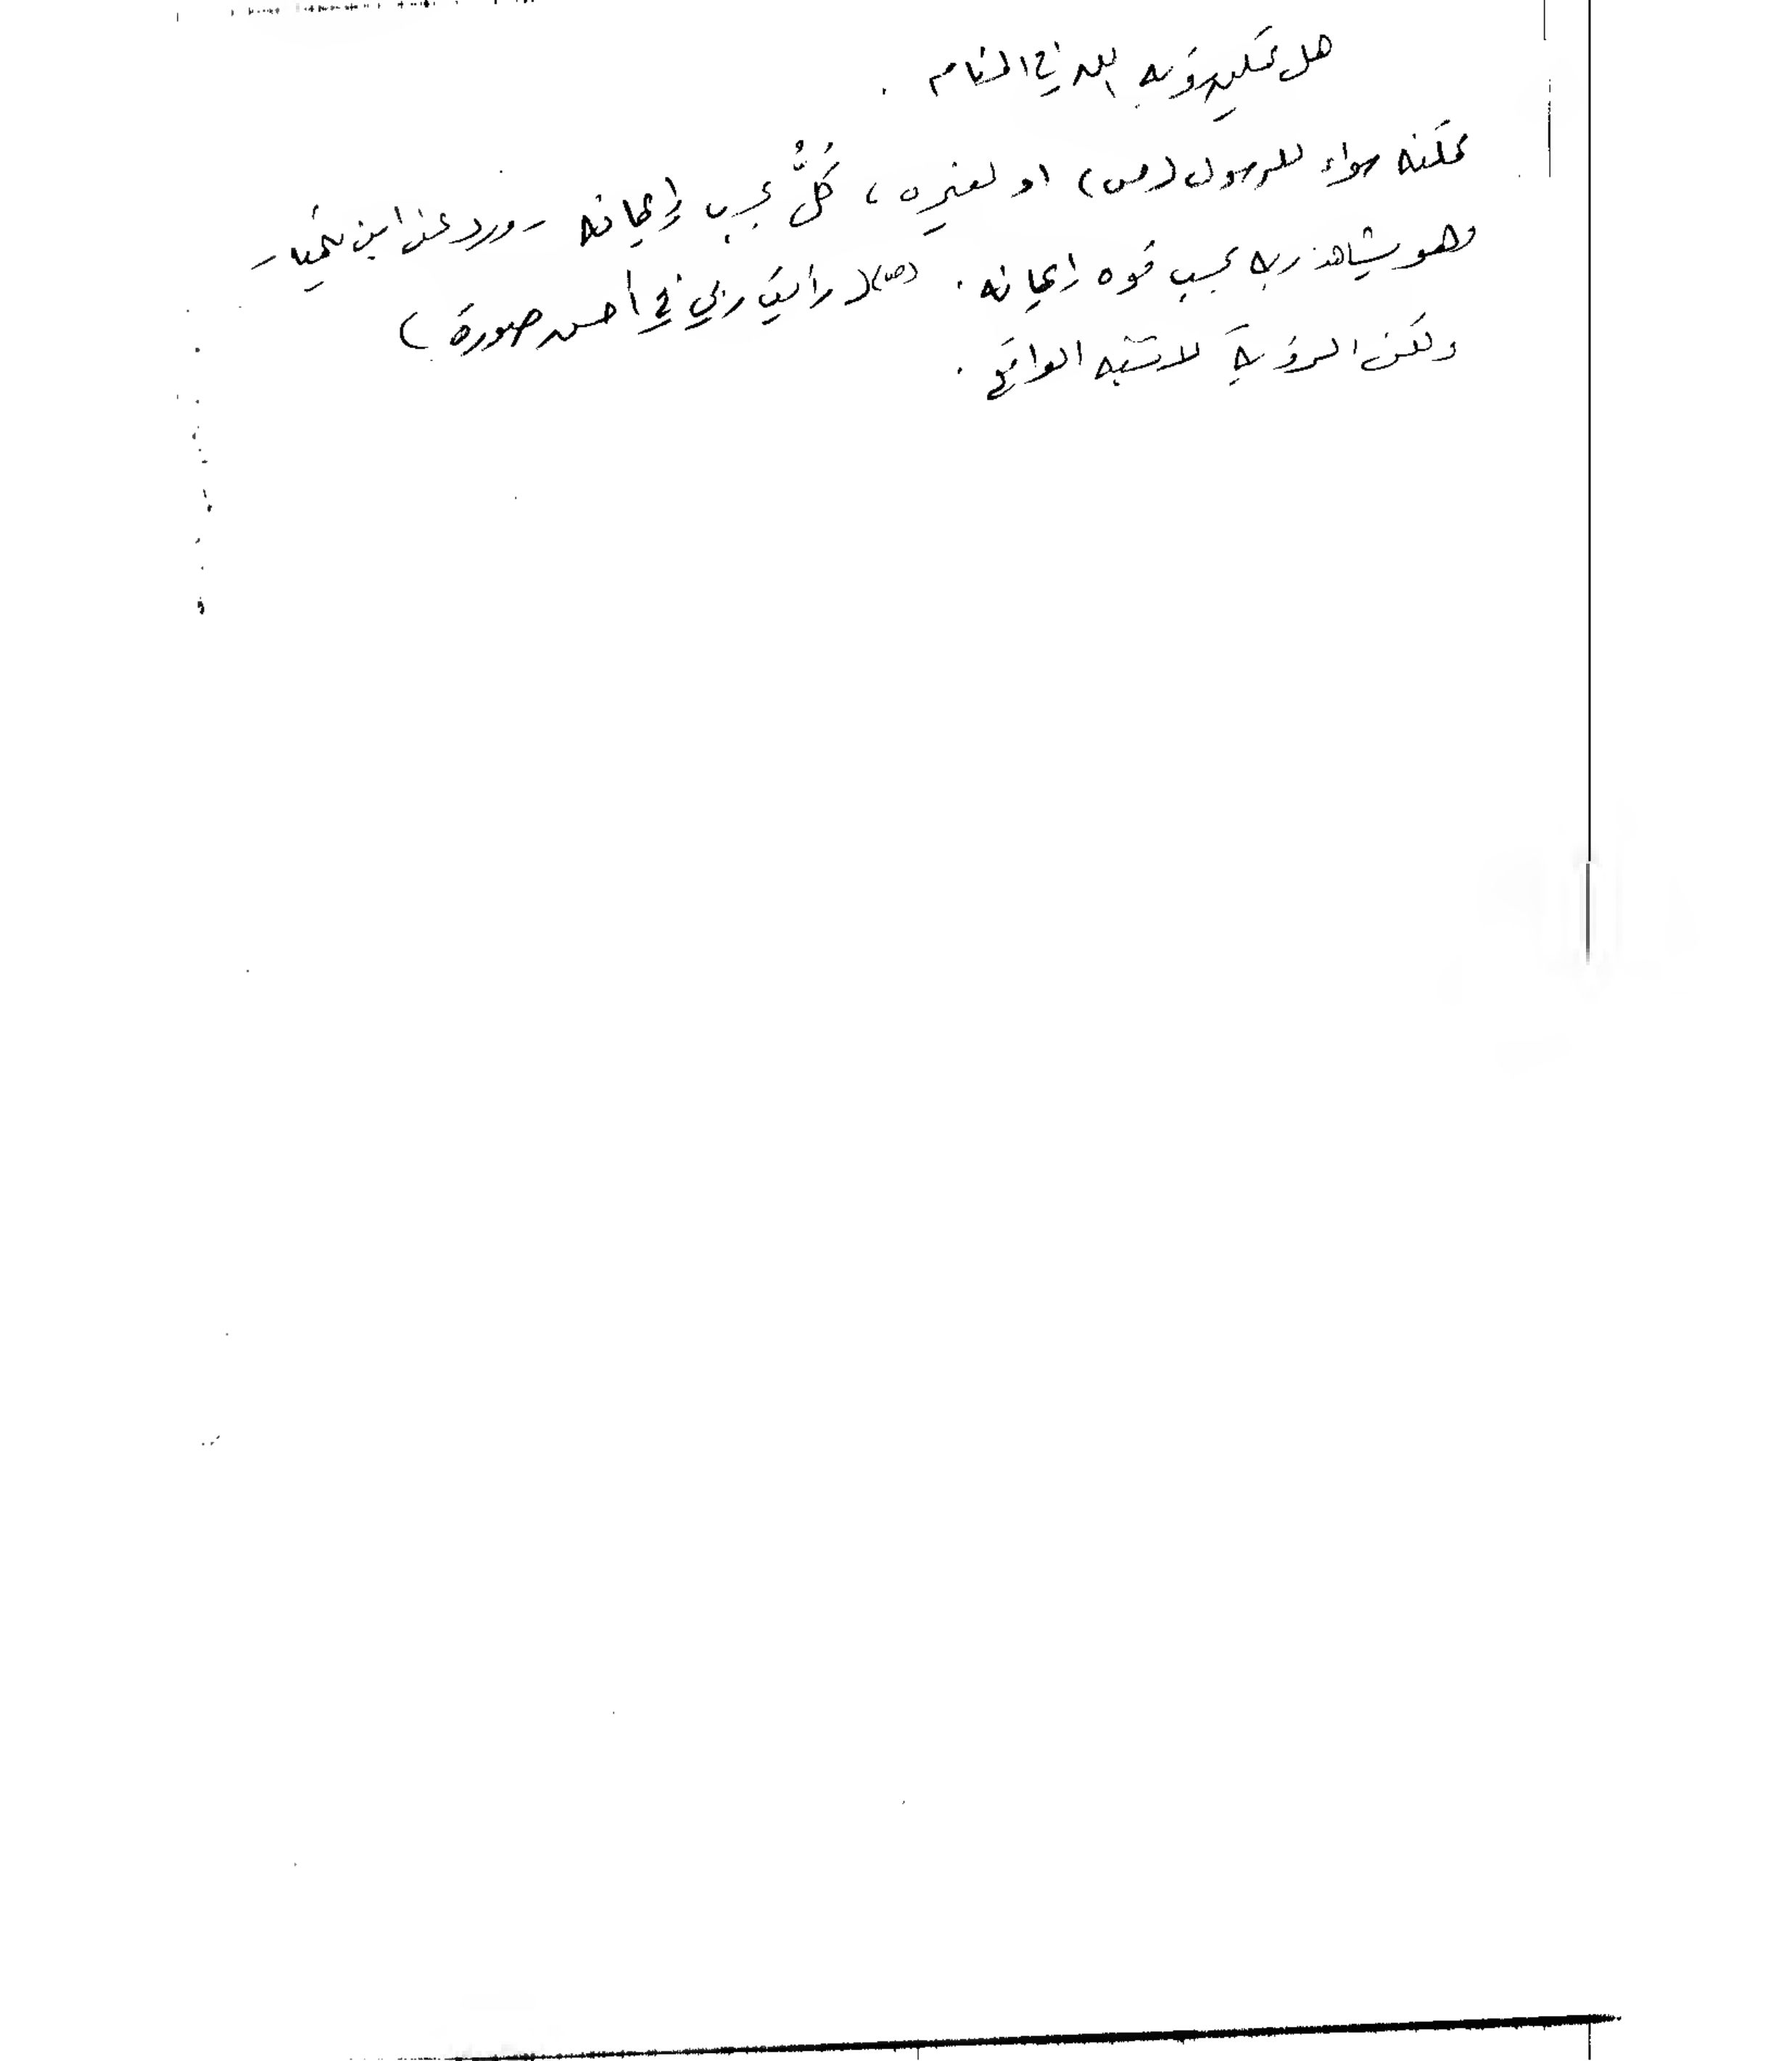 هل يمكن رؤيه الله في المنام .
يمكنه سواء للرسول (ص) او لغيره ، كلٌّ بحسب إيمانه - ورد عن ابن تيميه -
وهو يشاهد ربه بحسب قوه إيمانه . (ص) ( رأيت ربي في أحسن صورة )
ولكن الرؤية لا تشبه الواقع .